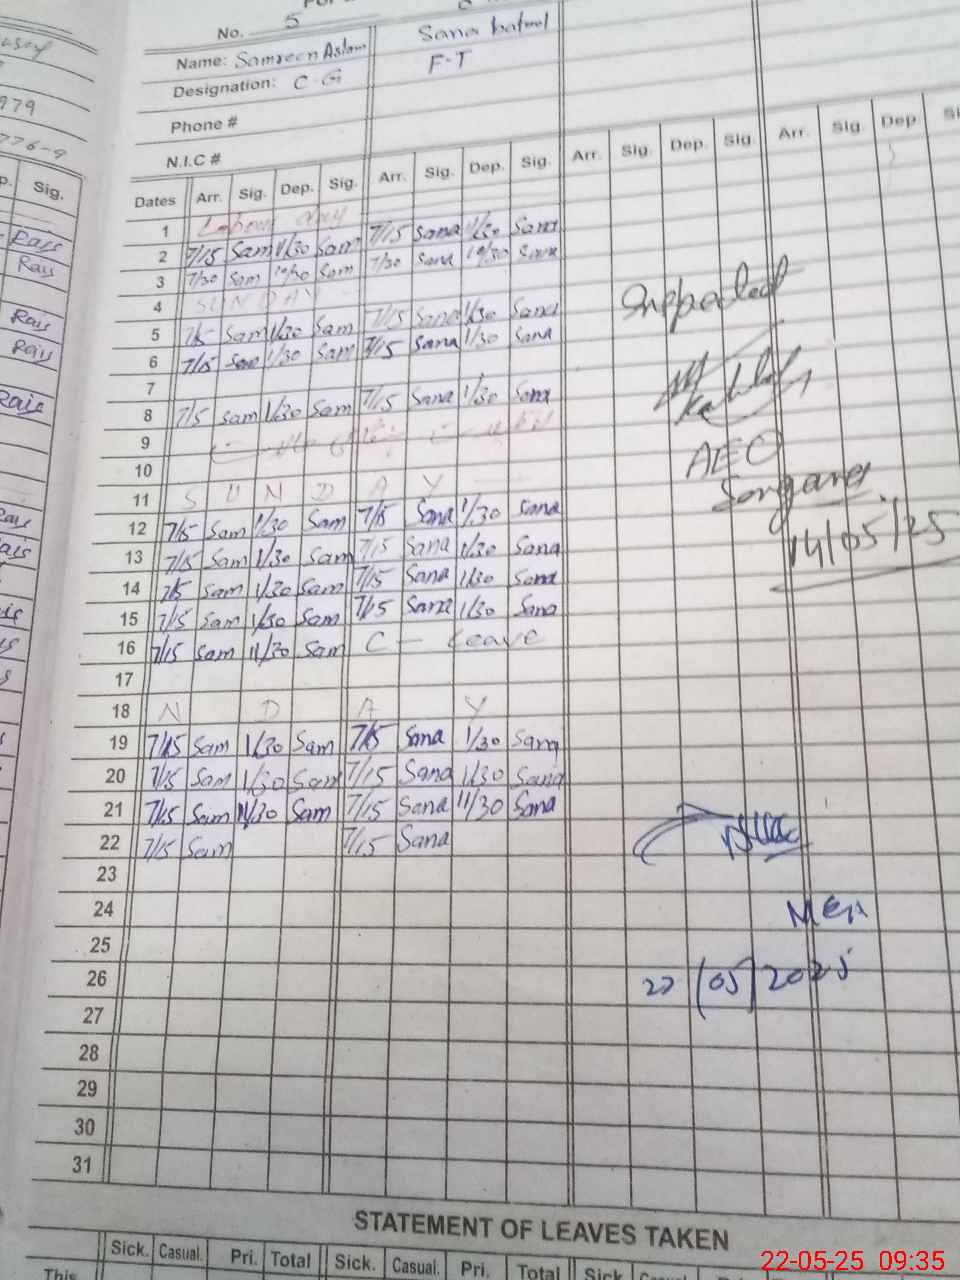 No. 5
Name: Samreen Aslam Sana batool
Designation: C-G F.T
Phone #
N.I.C #
979
776-9
Sig.
Rais
Rais
Rais
Rais
Dates Arr. Sig. Dep. Sig. Arr. Sig. Dep. Sig. Arr. Sig. Dep. Sig. Arr. Sig. Dep.
1 Labour day
2 7/15 Sam 1/30 Sam 7/15 Sana 1/30 Sana
3 7/30 Sam 10/30 Sam 7/30 Sana 10/30 Sana
4 SUNDAY
5 7/15 Sam 1/30 Sam 7/15 Sana 1/30 Sana
6 7/15 Sam 1/30 Sam 7/15 Sana 1/30 Sana
7
8 7/15 Sam 1/30 Sam 7/15 Sana 1/30 Sana
9
10
11 S U N D A Y
12 7/15 Sam 1/30 Sam 7/15 Sana 1/30 Sana
13 7/15 Sam 1/30 Sam 7/15 Sana 1/30 Sana
14 7/15 Sam 1/30 Sam 7/15 Sana 1/30 Sana
15 7/15 Sam 1/30 Sam 7/15 Sana 1/30 Sana
16 7/15 Sam 11/30 Sam C - Leave
17
18 N D A Y
19 7/15 Sam 1/30 Sam 7/15 Sana 1/30 Sana
20 7/15 Sam 1/30 Sam 7/15 Sana 1/30 Sana
21 7/15 Sam 11/30 Sam 7/15 Sana 11/30 Sana
22 7/15 Sam 7/15 Sana
23
24
25
26
27
28
29
30
31
AEO
14/05/25
MEA
22/05/2025
STATEMENT OF LEAVES TAKEN
Sick. Casual. Pri. Total Sick. Casual. Pri. Total Sick
This
22-05-25 09:35